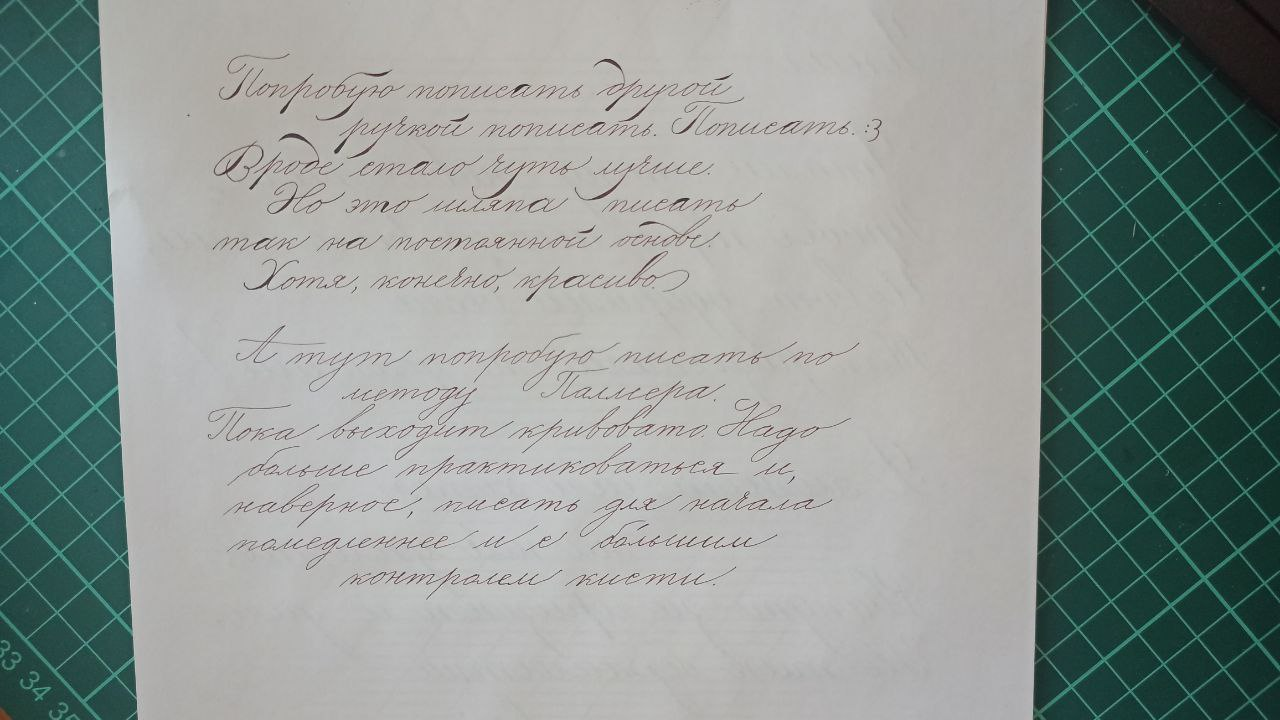 Попробую пописать другой
ручкой пописать. Пописать. :3
Вроде стало чуть лучше.
Но это шляпа писать
так на постоянной основе.
Хотя, конечно, красиво.
А тут попробую писать по
методу Палмера.
Пока выходит кривовато. Надо
больше практиковаться и,
наверное, писать для начала
помедленнее и с бо́льшим
контролем кисти.
33 34 35